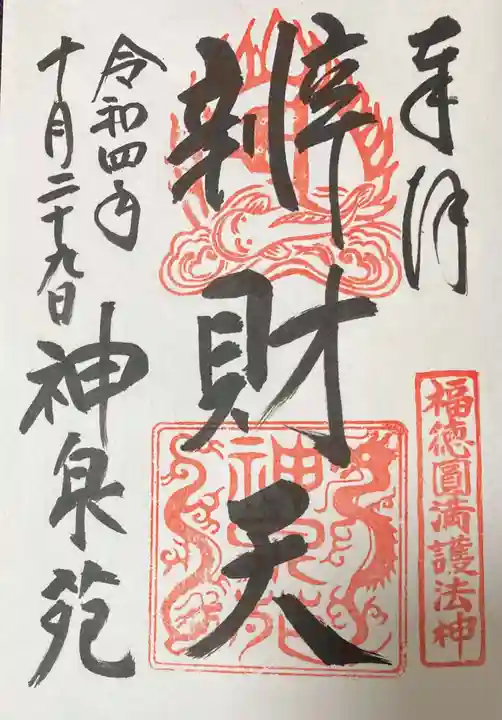 奉拝
福徳圓満護法神
辨財天
神泉苑
令和四年
十月二十九日
神泉苑